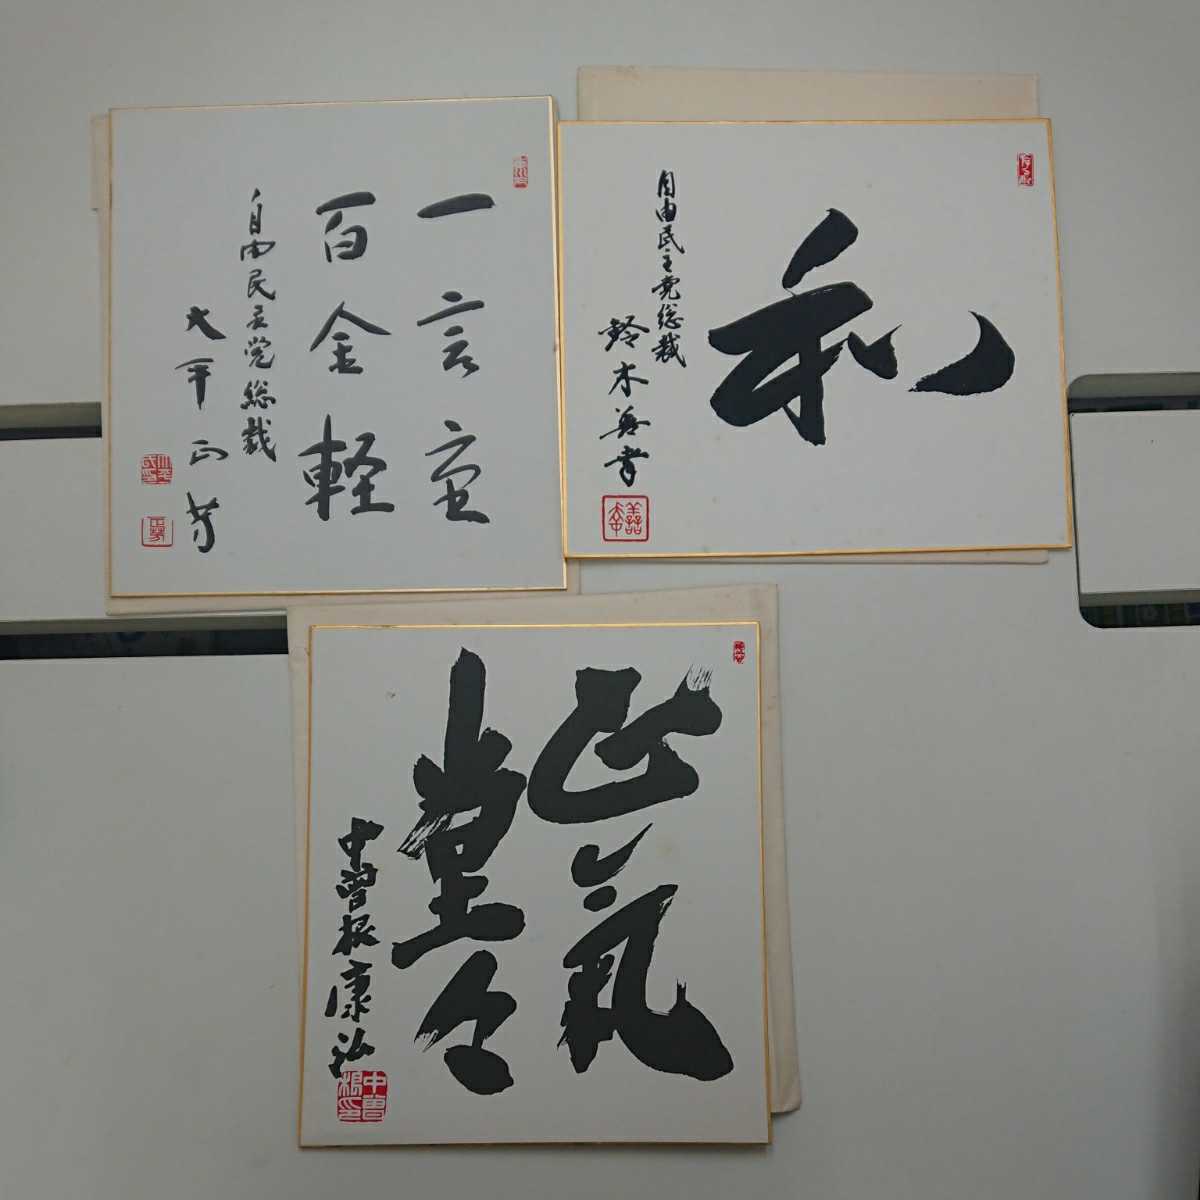 一言重
百金軽
自由民主党総裁
大平正芳
和
自由民主党総裁
鈴木善幸
善幸
正氣
堂々
中曽根康弘
中曽根印